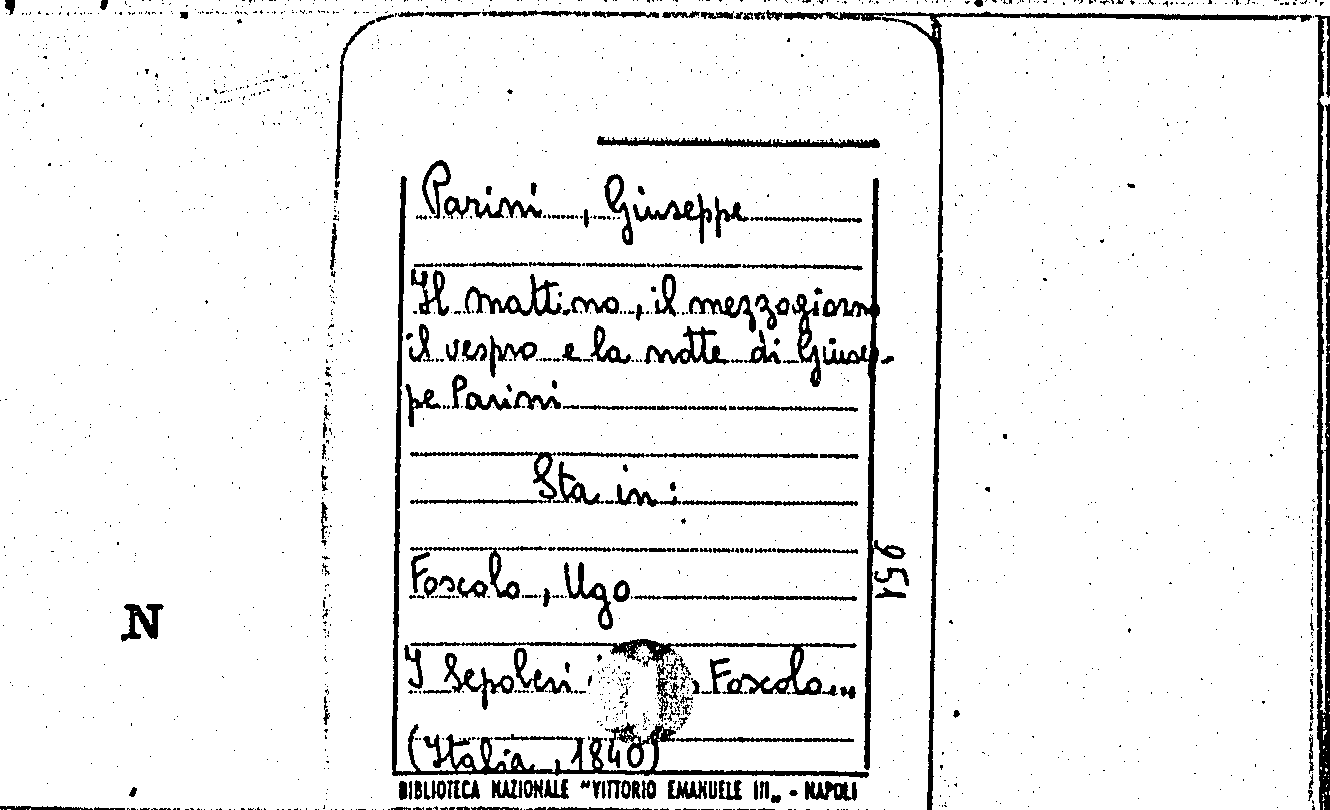 Parini, Giuseppe
Il mattino, il mezzogiorno
il vespro e la notte di Giusep-
pe Parini
Sta in:
Foscolo, Ugo
I Sepolcri Foscolo...
(Italia, 1840)
BIBLIOTECA NAZIONALE "VITTORIO EMANUELE III„ - NAPOLI
951
N